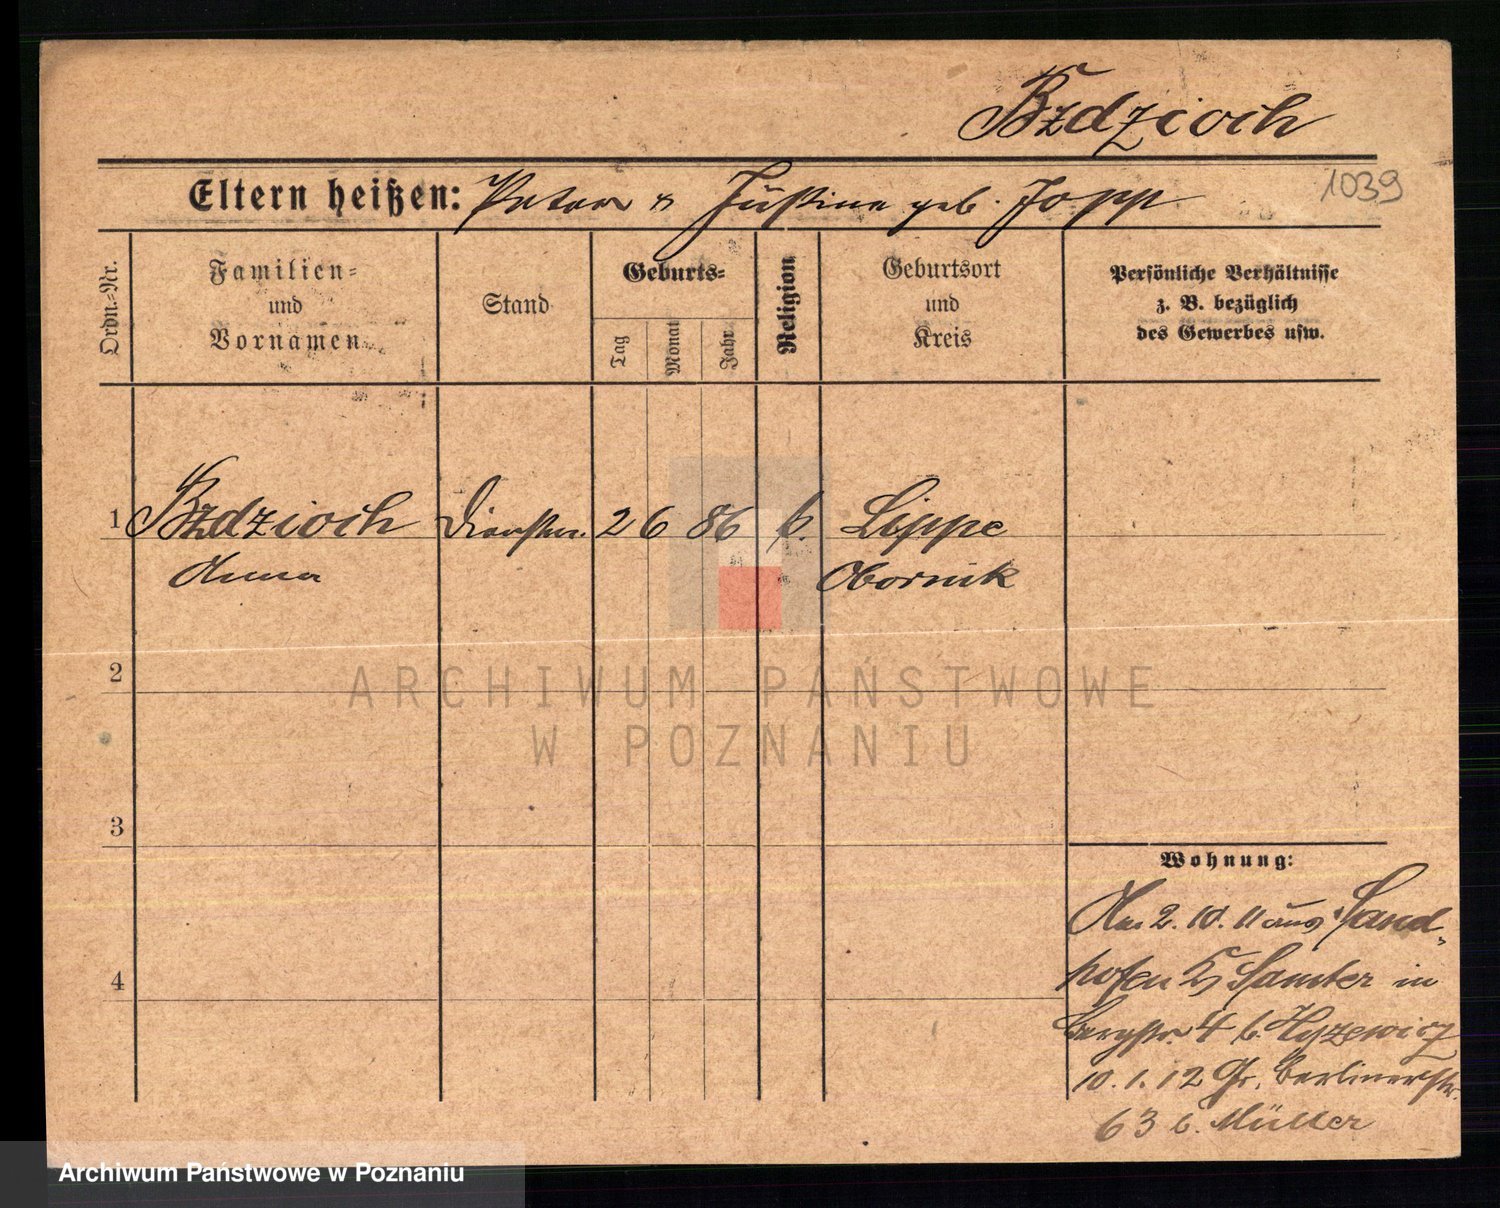 Bzdzioch
1039
Eltern heißen: Peter u Justine geb. Jopp
Ordn.-Nr.
Familien-
und
Vornamen
Stand
Geburts-
Tag
Monat
Jahr
Religion
Geburtsort
und
Kreis
Persönliche Verhältnisse
z. B. bezüglich
des Gewerbes usw.
1 Bzdzioch 2 6 86 k. Lippe
Anna Obornik
2
3
4
Wohnung:
Am 2. 10. 11 aus Sand-
hofen Samter in
Bergstr. 4 b.
10. 1. 12 Gr. Berlinerstr.
63 b. Müller
ARCHIWUM PAŃSTWOWE
W POZNANIU
Archiwum Państwowe w Poznaniu